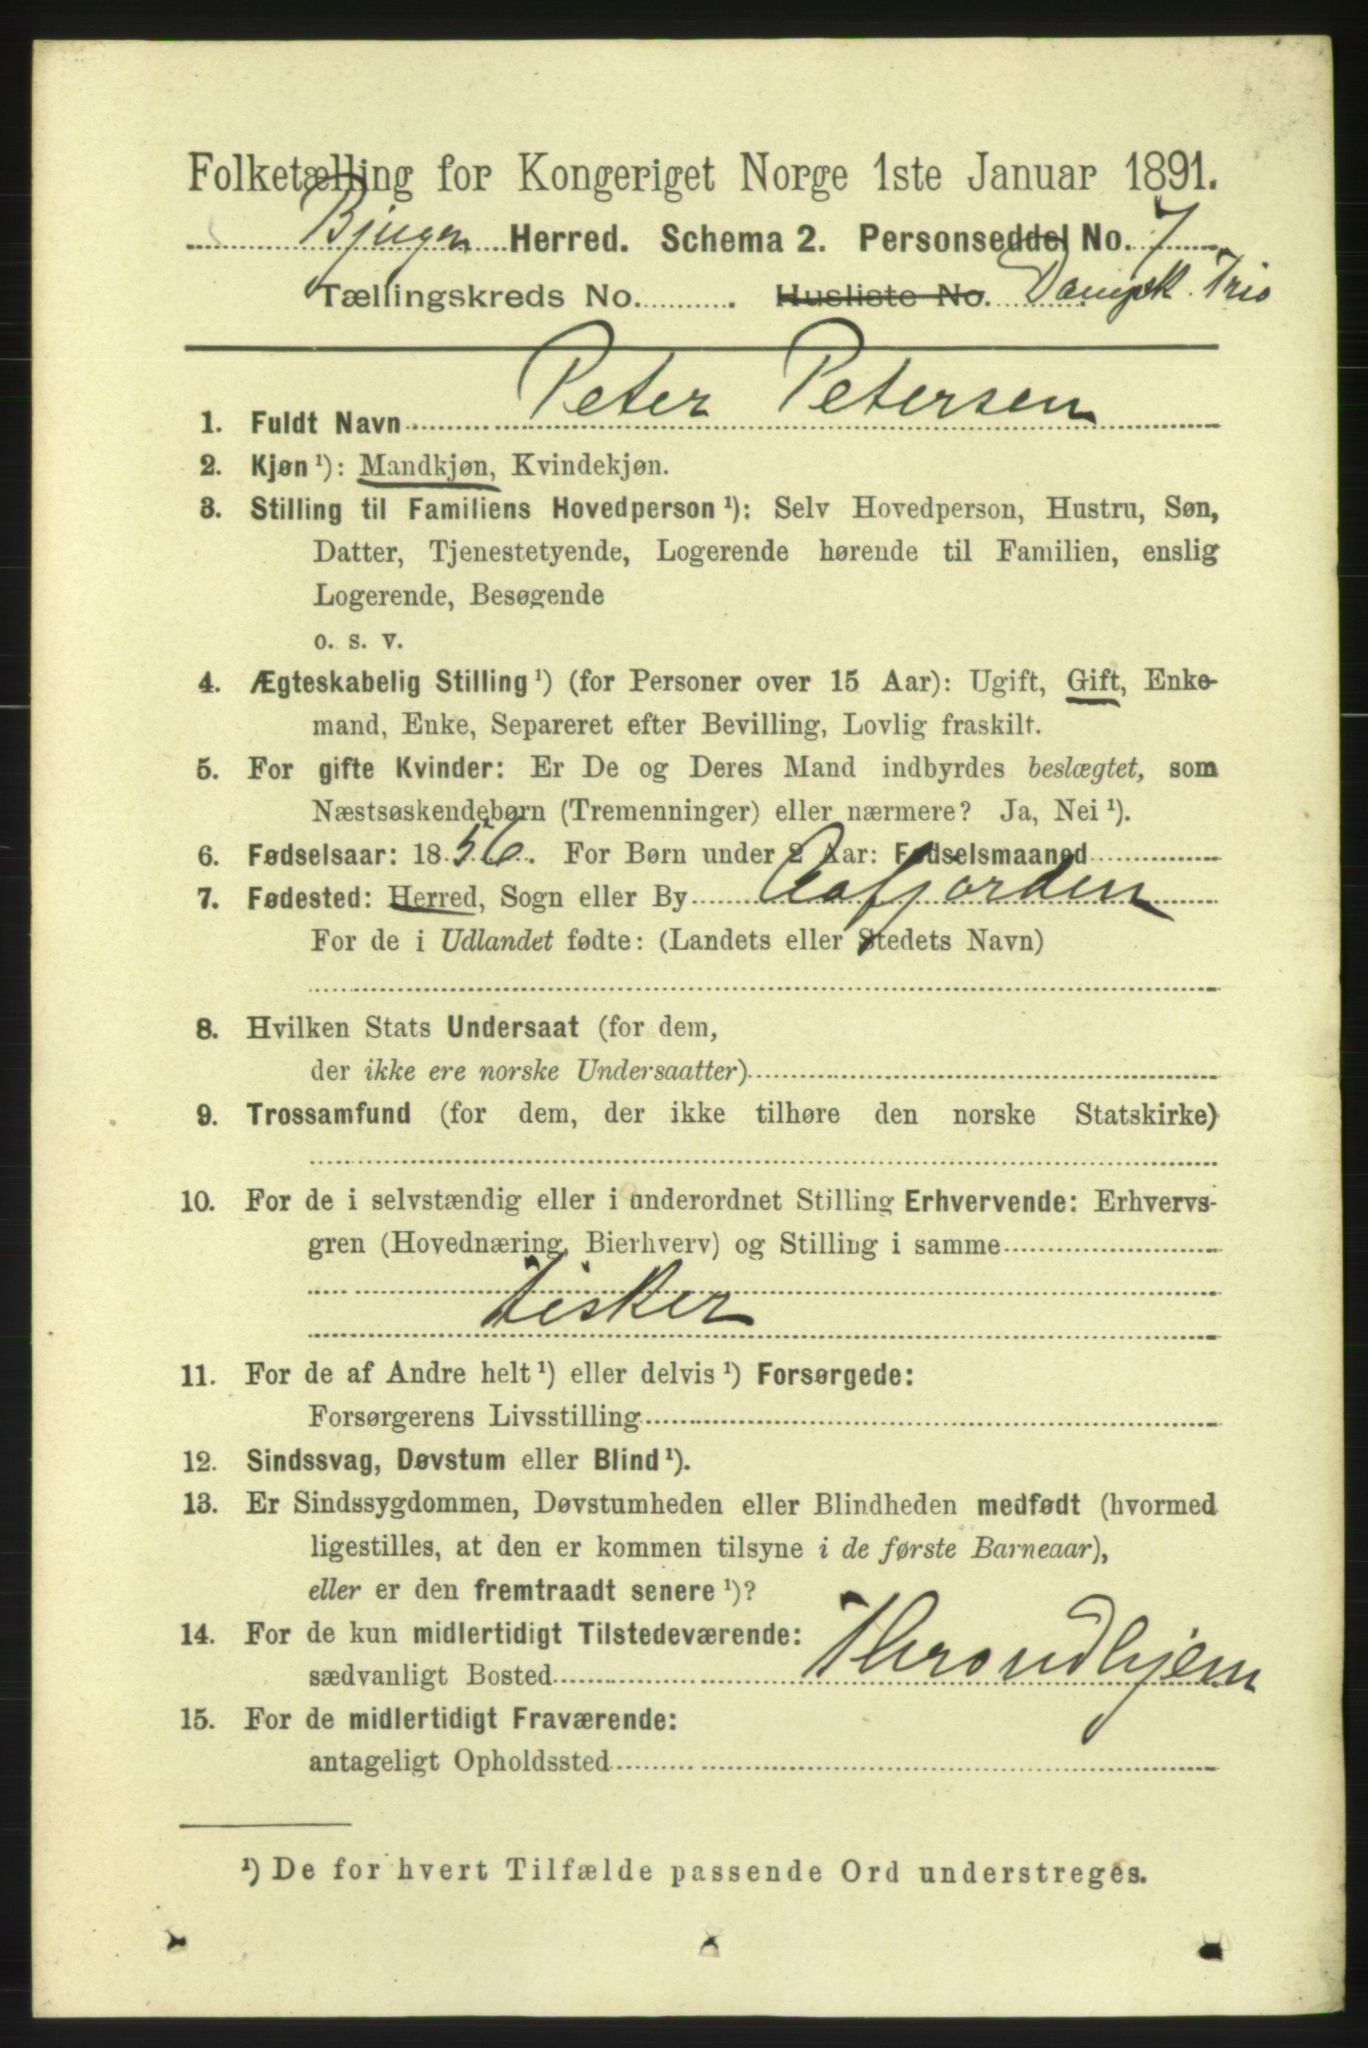 Folketælling for Kongeriget Norge 1ste Januar 1891.
Bjugn Herred. Schema 2. Personseddel No. 7
Tællingskreds No. . Husliste No. Dampsk. Trio
1. Fuldt Navn Peter Petersen
2. Kjøn ¹): Mandkjøn, Kvindekjøn.
3. Stilling til Familiens Hovedperson ¹): Selv Hovedperson, Hustru, Søn,
Datter, Tjenestetyende, Logerende hørende til Familien, enslig
Logerende, Besøgende
o. s. v.
4. Ægteskabelig Stilling ¹) (for Personer over 15 Aar): Ugift, Gift, Enke-
mand, Enke, Separeret efter Bevilling, Lovlig fraskilt.
5. For gifte Kvinder: Er De og Deres Mand indbyrdes beslægtet, som
Næstsøskendebørn (Tremenninger) eller nærmere? Ja, Nei ¹).
6. Fødselsaar: 1856. For Børn under 2 Aar: Fødselsmaaned
7. Fødested: Herred, Sogn eller By Aafjorden
For de i Udlandet fødte: (Landets eller Stedets Navn)
8. Hvilken Stats Undersaat (for dem,
der ikke ere norske Undersaatter)
9. Trossamfund (for dem, der ikke tilhøre den norske Statskirke)
10. For de i selvstændig eller i underordnet Stilling Erhvervende: Erhvervs-
gren (Hovednæring, Bierhverv) og Stilling i samme
Fisker
11. For de af Andre helt ¹) eller delvis ¹) Forsørgede:
Forsørgerens Livsstilling
12. Sindssvag, Døvstum eller Blind ¹).
13. Er Sindssygdommen, Døvstumheden eller Blindheden medfødt (hvormed
ligestilles, at den er kommen tilsyne i de første Barneaar),
eller er den fremtraadt senere ¹)?
14. For de kun midlertidigt Tilstedeværende:
sædvanligt Bosted Throndhjem
15. For de midlertidigt Fraværende:
antageligt Opholdssted
¹) De for hvert Tilfælde passende Ord understreges.